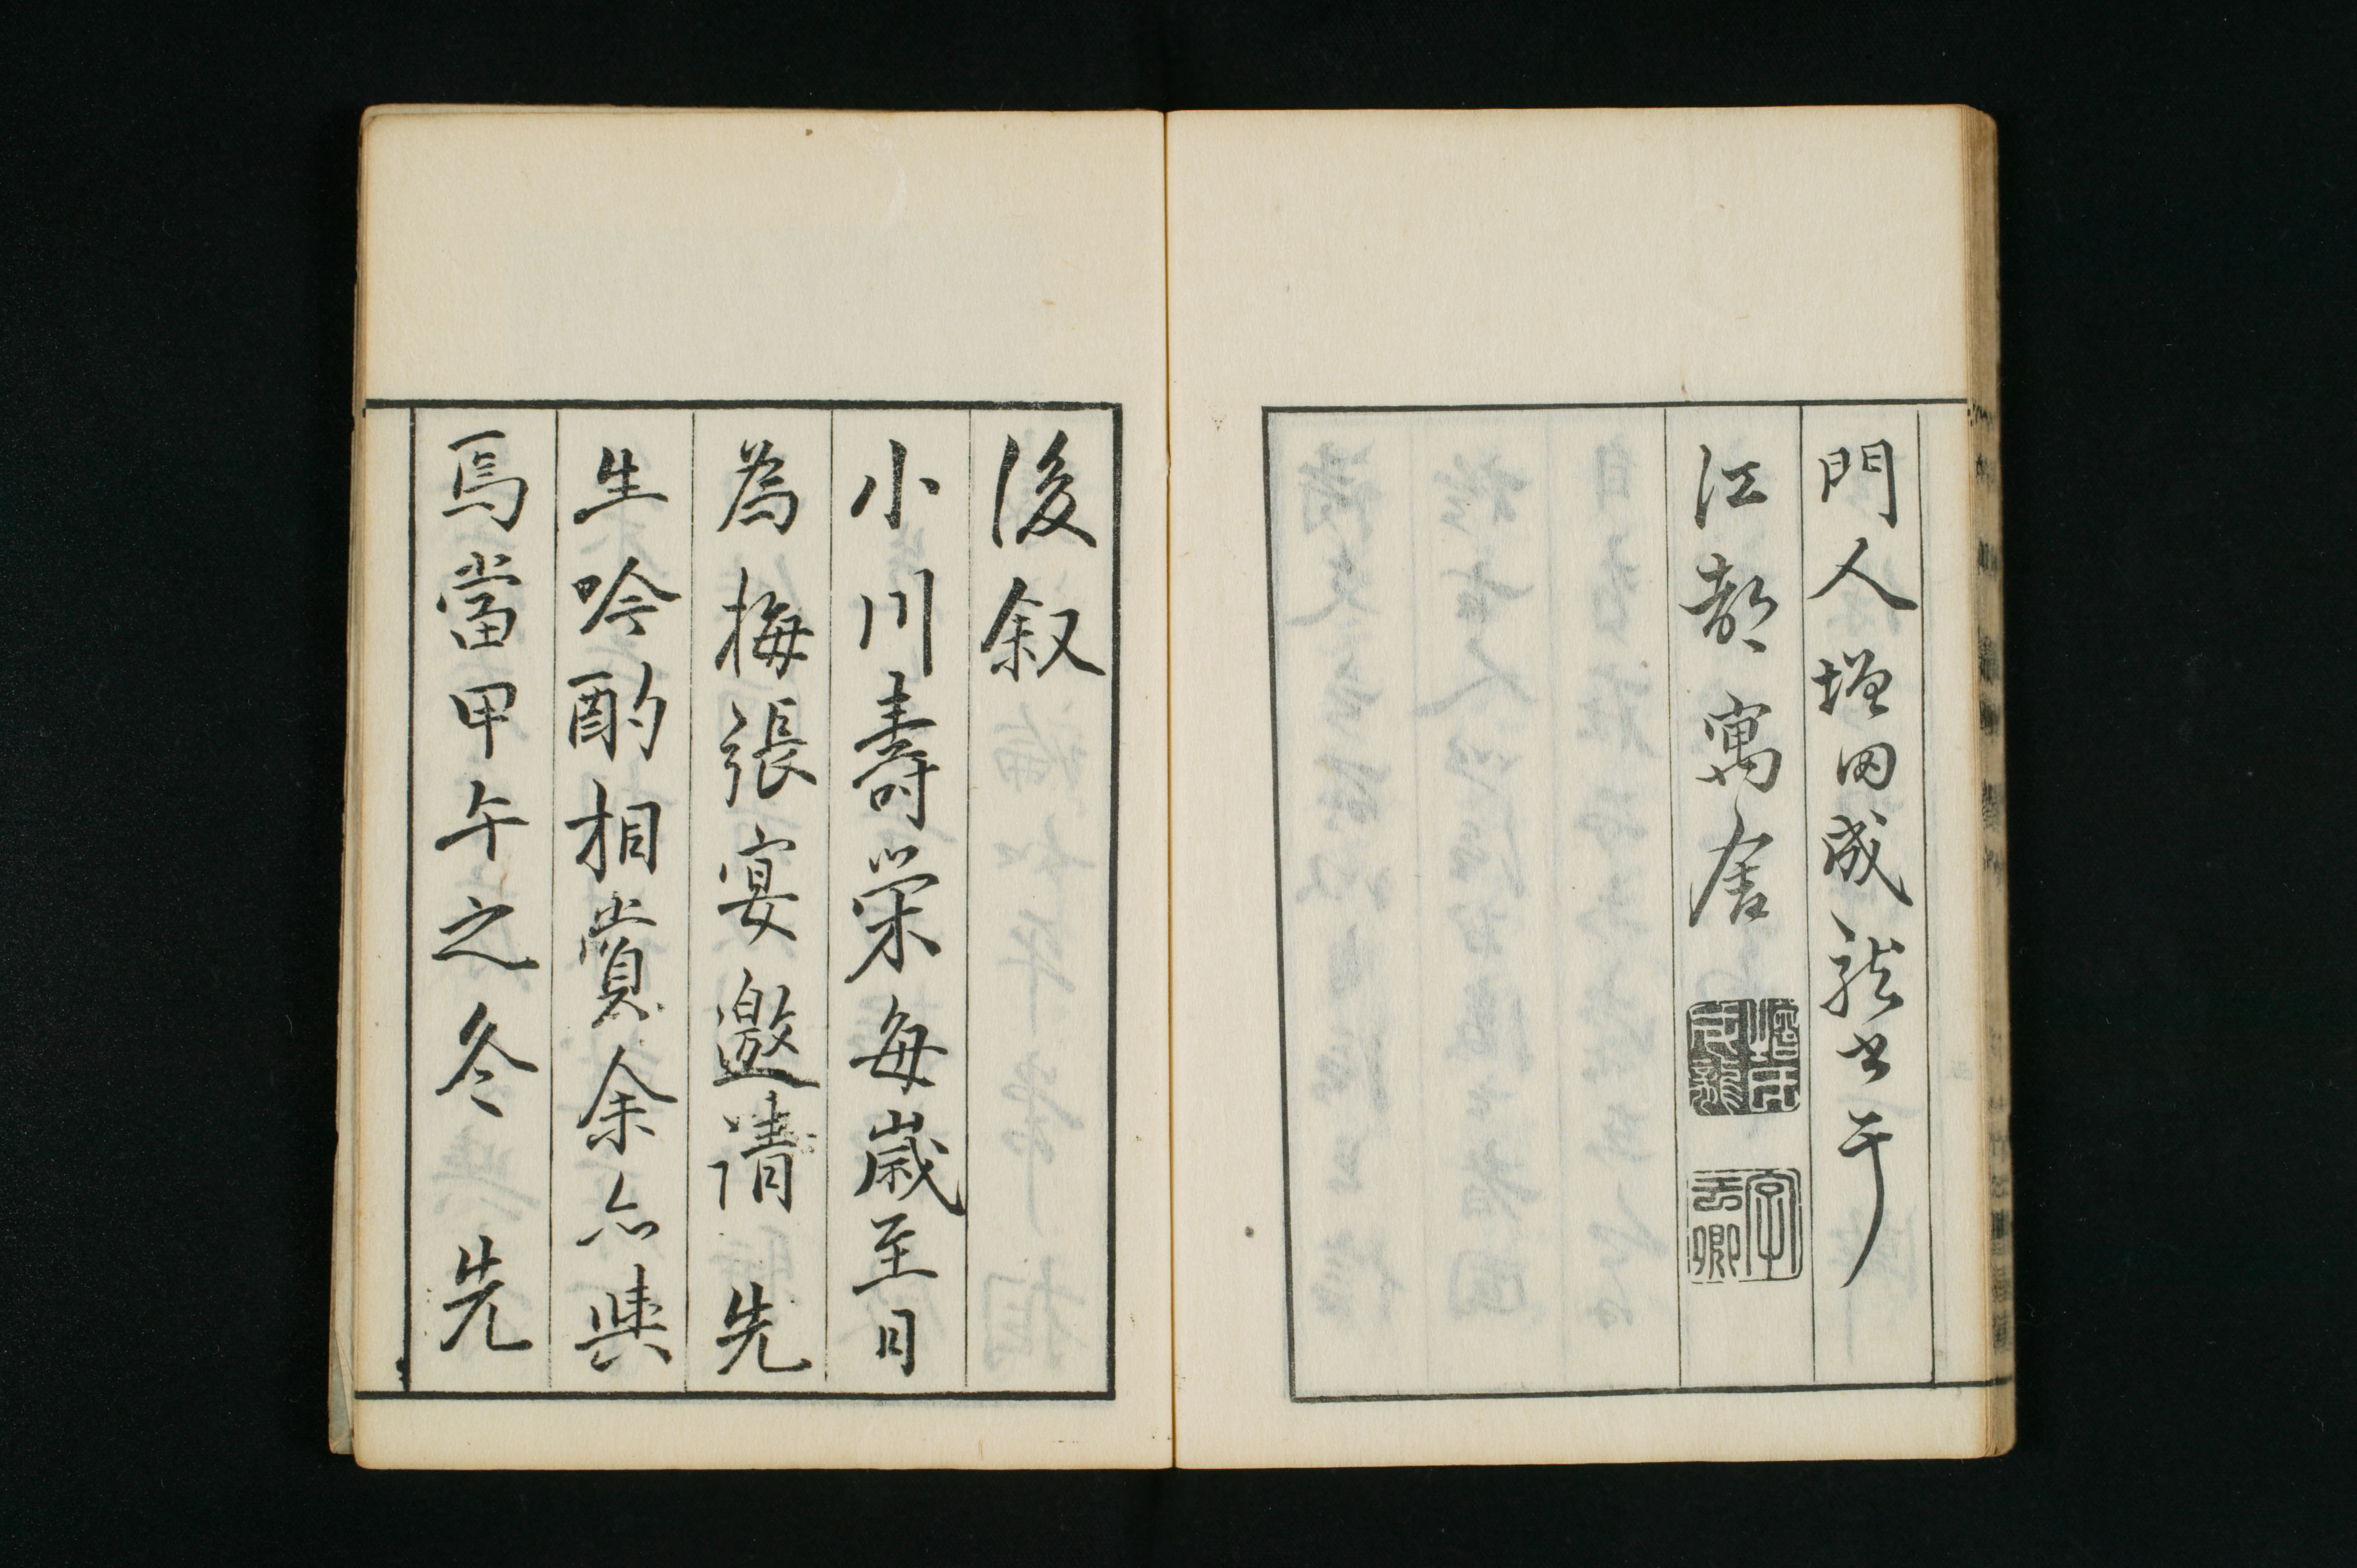 門人増田成龍書于
江都寓舎
字
卿
後叙
小川壽榮毎歳至日
為梅張宴邀請先
生吟酌相賞余亦與
焉當甲午之冬先